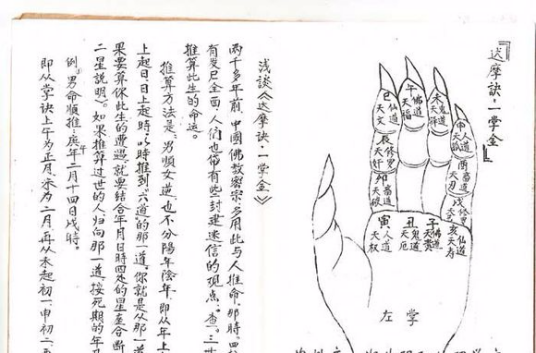 『达摩诀·一掌金』
巳 仙道 天文
午 佛道 天福
未 鬼道 天驿
申 人道 天孤
辰 修罗 天奸
卯 畜道 天破
酉 畜道 天刃
戌 修罗
寅 人道 天权
丑 鬼道 天厄
子 佛道 天贵
亥 仙道 天寿
左掌
浅谈《达摩诀·一掌金》
两千多年前，中國佛教密宗多用此与人推命，那時，
有发已全面，人们也带有些封建迷信的观点。查。三
推算此生的命运。
推算方法是：男顺女逆，也不分陽年陰年，即从年上
上起日，日上起時，以時推到六道的那一道。你就是从那一道
果要算你此生的遭遇就要结合年月日時四处的星至合断
二星説明》。如果推算过世的人，归向那一道，按死期的年月
例。男命順推：庚午年二月十四日戌時。
即从掌訣上午为正月，未为二月，再从未起初一，申初二，